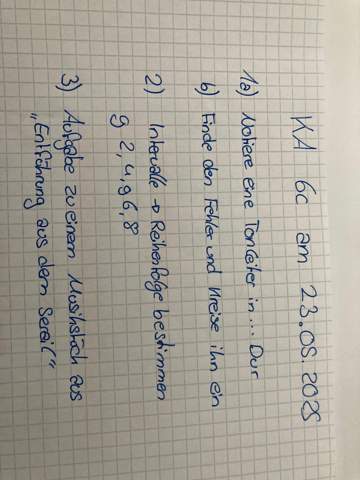 KA 6c am 23.05.2025
1a) Notiere eine Tonleiter in... Dur
b) Finde den Fehler und kreise ihn ein
2) Intervalle → Reihenfolge bestimmen
g 2, 4, g 6, 8
3) Aufgabe zu einem Musikstück aus
„Entführung aus dem Serail“